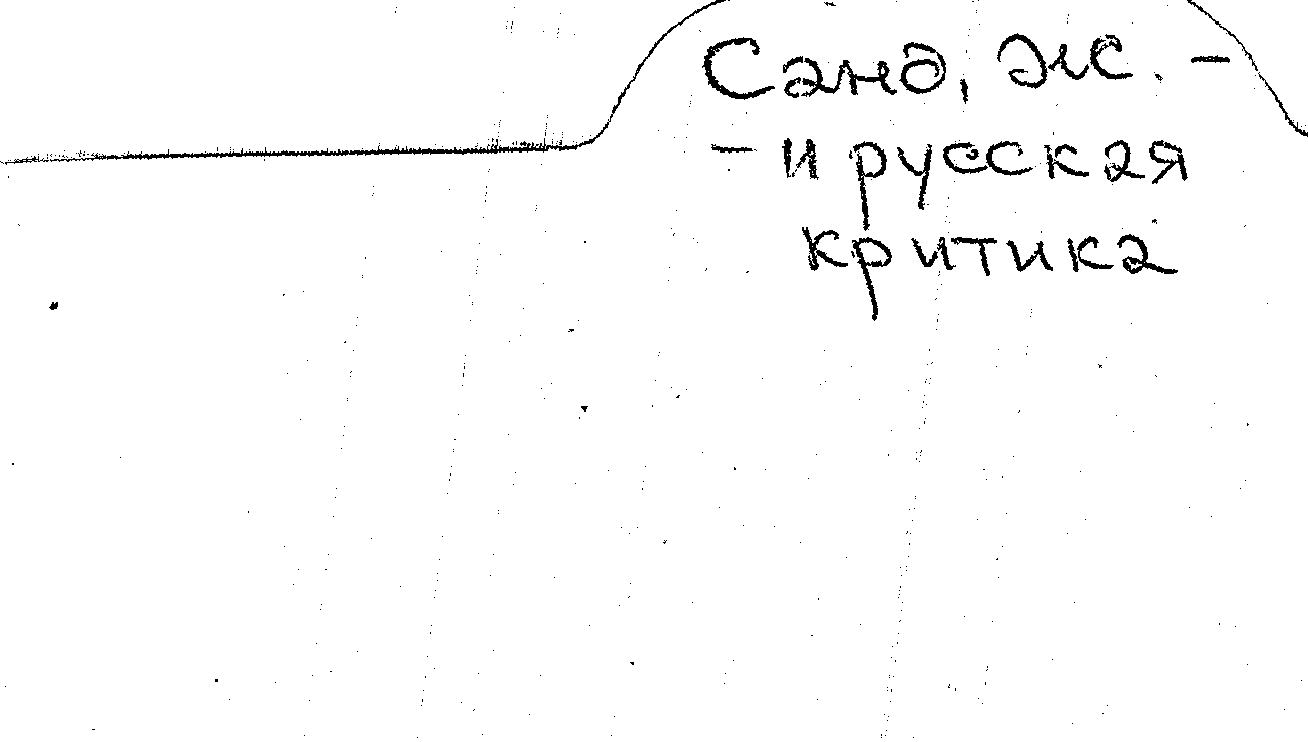 Санд, Ж. -
- и русская
критика